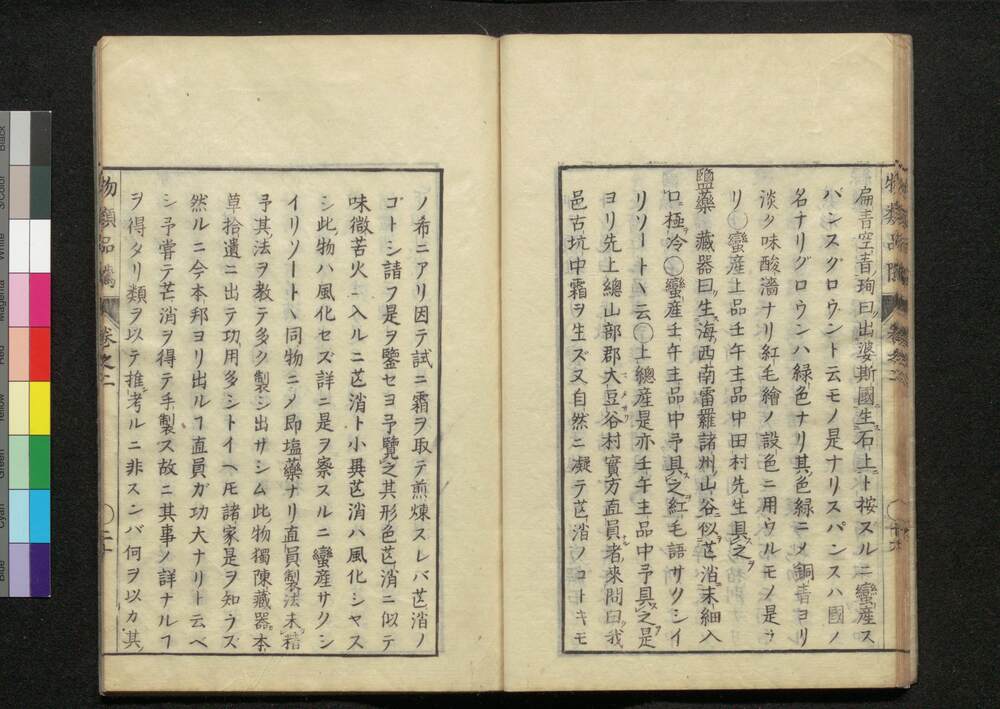 扁青空青珣曰出婆斯國生石上ト按スルニ蠻産ス
パンスグロウント云モノ是ナリスパンスハ國ノ
名ナリグロウンハ緑色ナリ其色緑ニメ銅青ヨリ
淡ク味酸濇ナリ紅毛繪ノ設色ニ用ウルモノ是ナ
リ〇蠻産上品壬午主品中田村先生具之
鹽藥 藏器曰生海西南雷羅諸州山谷似芒消末細入
口極冷〇蠻産壬午主品中予具之紅毛語サクシイ
リソートト云〇上總産是亦壬午主品中予具之是
ヨリ先上總山部郡大豆谷村實方直員者來問曰我
邑古坑中霜ヲ生ズ又自然ニ凝テ芒消ノコトキモ
物類品隲 卷之二 〇二十
ノ希ニアリ因テ試ニ霜ヲ取テ煎煉スレバ芒消ノ
コトシ請フ是ヲ鑒セヨ予覽之其形色芒消ニ似テ
味微苦火ニ入ルニ芒消ト小異芒消ハ風化シヤス
シ此物ハ風化セズ詳ニ是ヲ察スルニ蠻産サクシ
イリソートト同物ニメ即塩藥ナリ直員製法未精
予其法ヲ教テ多ク製シ出サシム此物獨陳藏器本
草拾遺ニ出テ功用多シトイヘ𪜈諸家是ヲ知ラズ
然ルニ今本邦ヨリ出ルヿ直員ガ功大ナリト云ベ
シ予嘗テ芒消ヲ得テ手製ス故ニ其事ノ詳ナルヿ
ヲ得タリ類ヲ以テ推考ルニ非スンバ何ヲ以カ其
物類品隲